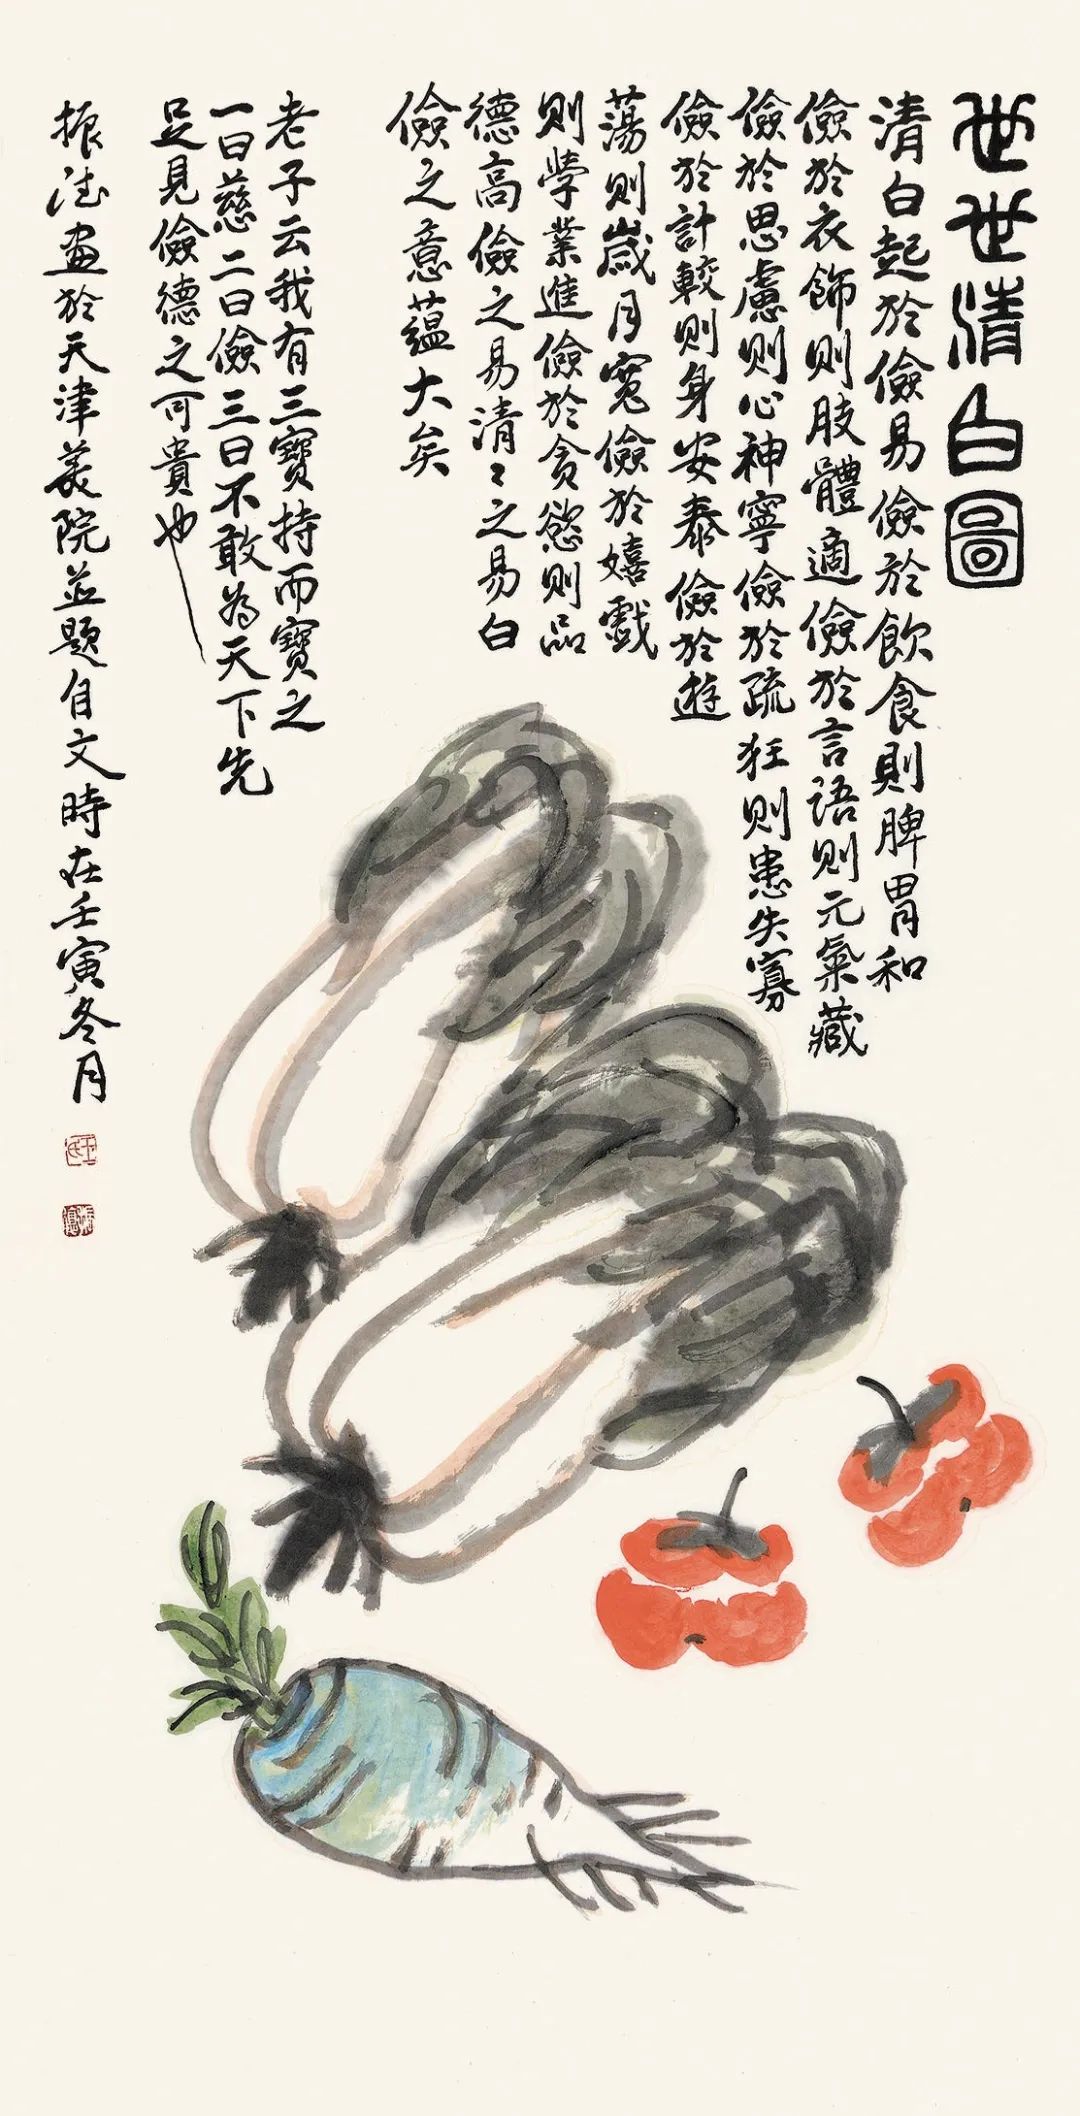 世世清白圖
清白起於儉易儉於飲食則脾胃和
儉於衣飾則肢體適儉於言語則元氣藏
儉於思慮則心神寧儉於疏狂則患失寡
儉於計較則身安泰儉於遊
蕩則歲月寬儉於嬉戲
則學業進儉於貪慾則品
德高儉之易清〻之易白
儉之意蘊大矣
老子云我有三寶持而寶之
一曰慈二曰儉三曰不敢為天下先
足見儉德之可貴也
振德畫於天津美院並題自文時在壬寅冬月
王氏
振德